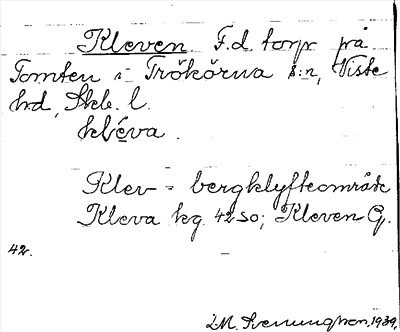 Kleven. F.d. torp på
Tomten i Trökörna s:n, Viste
hd, Skb. l.
kléva.
Klev = bergklyfteområde
Kleva hg. 4250; Kleven G.
42.
1939.